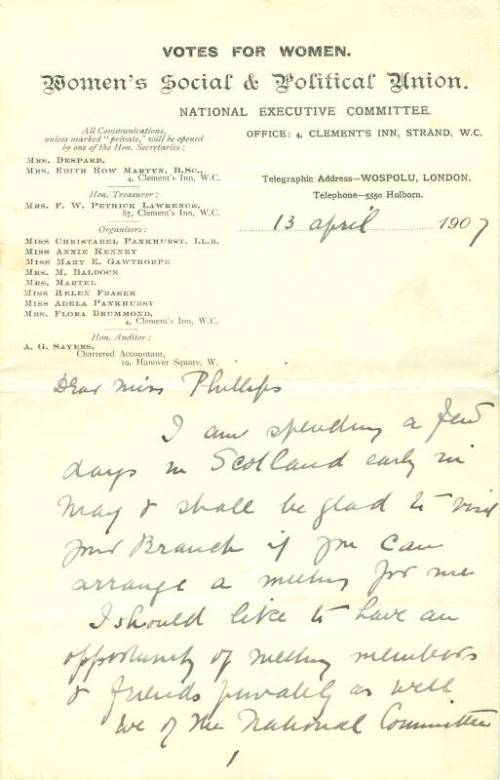 VOTES FOR WOMEN.
Women's Social & Political Union.
NATIONAL EXECUTIVE COMMITTEE.
All Communications,
unless marked "private," will be opened
by one of the Hon. Secretaries:
MRS. DESPARD,
MRS. EDITH HOW MARTYN, B.Sc.,
4, Clement's Inn, W.C.
Hon. Treasurer:
MRS. F. W. PETHICK LAWRENCE,
87, Clement's Inn, W.C.
Organisers:
MISS CHRISTABEL PANKHURST, LL.B.
MISS ANNIE KENNEY
MISS MARY E. GAWTHORPE
MRS. M. BALDOCK
MRS. MARTEL
MISS HELEN FRASER
MISS ADELA PANKHURST
MRS. FLORA DRUMMOND,
4, Clement's Inn, W.C.
Hon. Auditor:
A. G. SAYERS,
Chartered Accountant,
19, Hanover Square, W.
OFFICE: 4, CLEMENT'S INN, STRAND, W.C.
Telegraphic Address—WOSPOLU, LONDON.
Telephone—5550 Holborn.
13 april 1907
Dear Miss Phillips
I am spending a few
days in Scotland early in
May & shall be glad to visit
your Branch if you can
arrange a meeting for me
I should like to have an
opportunity of meeting members
& friends privately as well
We of the National Committee
1